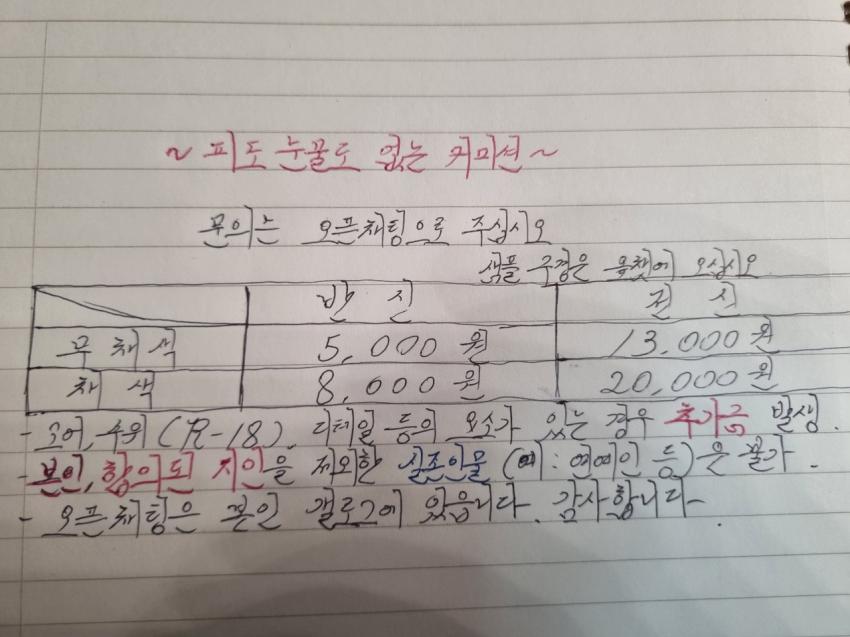 ~ 피도 눈물도 없는 커미션 ~
문의는 오픈채팅으로 주십시오
샘플 구경은 목챗에 오십시오
반 신 전 신
무 채 색 5,000 원 13,000 원
채 색 8,000 원 20,000 원
- 수위 (R-18), 디테일 등의 요소가 있는 경우 추가금 발생.
- 본인, 합의된 지인을 제외한 실존인물 (예: 연예인 등)은 불가.
- 오픈채팅은 본인 갤로그에 있읍니다. 감사합니다.